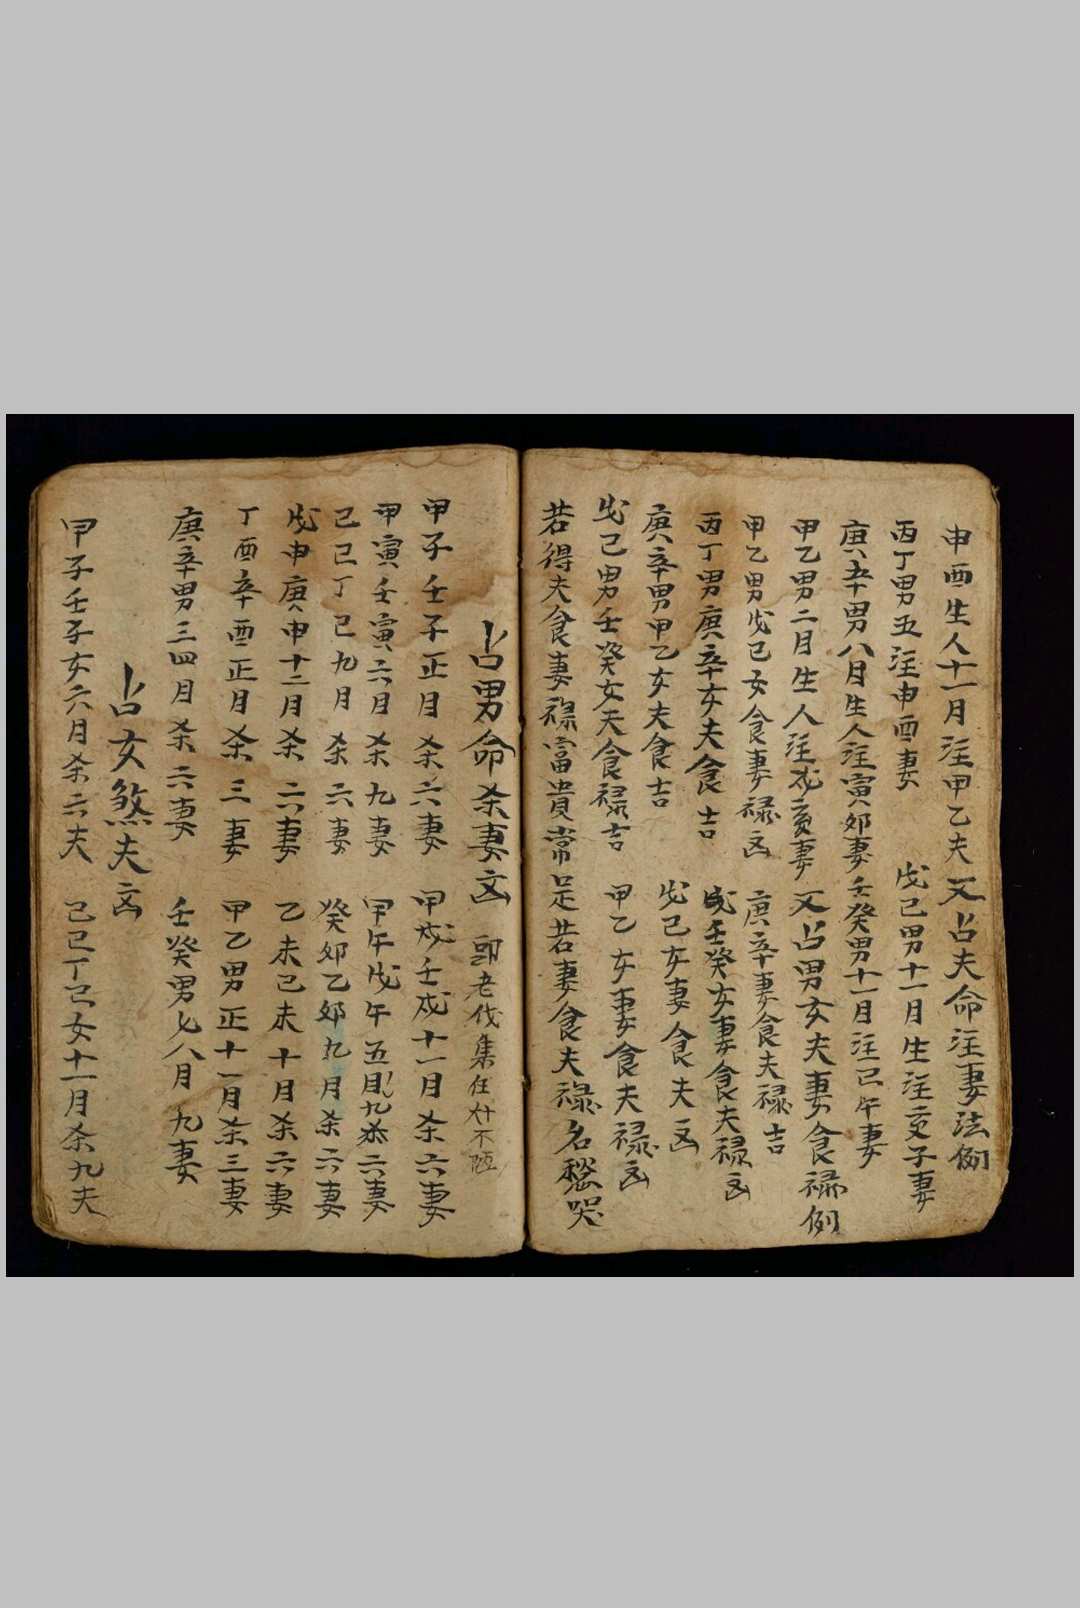 申酉生人十一月注甲乙夫 又占夫命注妻法例
丙丁男五注申酉妻 戊己男十一月生注亥子妻
庚辛男八月生人注寅卯妻壬癸男十一月注巳午妻
甲乙男二月生人注戌亥妻 又占男女夫妻食禄例
甲乙男戊己女食妻禄凶 庚辛妻食夫禄吉
丙丁男庚辛女夫食吉 壬癸女妻食夫禄凶
庚辛男甲乙女夫食吉 戊己女妻食夫凶
戊己男壬癸女夫食禄吉 甲乙女妻食夫禄凶
若得夫食妻禄富貴常足若妻食夫禄名愁哭
占男命杀妻凶 老伐集在不
甲子壬子正月杀六妻 甲戌壬戌十一月杀六妻
甲寅壬寅六月杀九妻 甲午戊午五月九杀二妻
己巳丁巳九月杀六妻 癸卯乙卯九月杀六妻
戊申庚申十二月杀六妻 乙未己未十月杀六妻
丁酉辛酉正月杀三妻 甲乙男正十一月杀三妻
庚辛男三四月杀六妻 壬癸男七八月九妻
占女煞夫凶
甲子壬子女六月杀六夫 己巳丁巳女十一月杀九夫